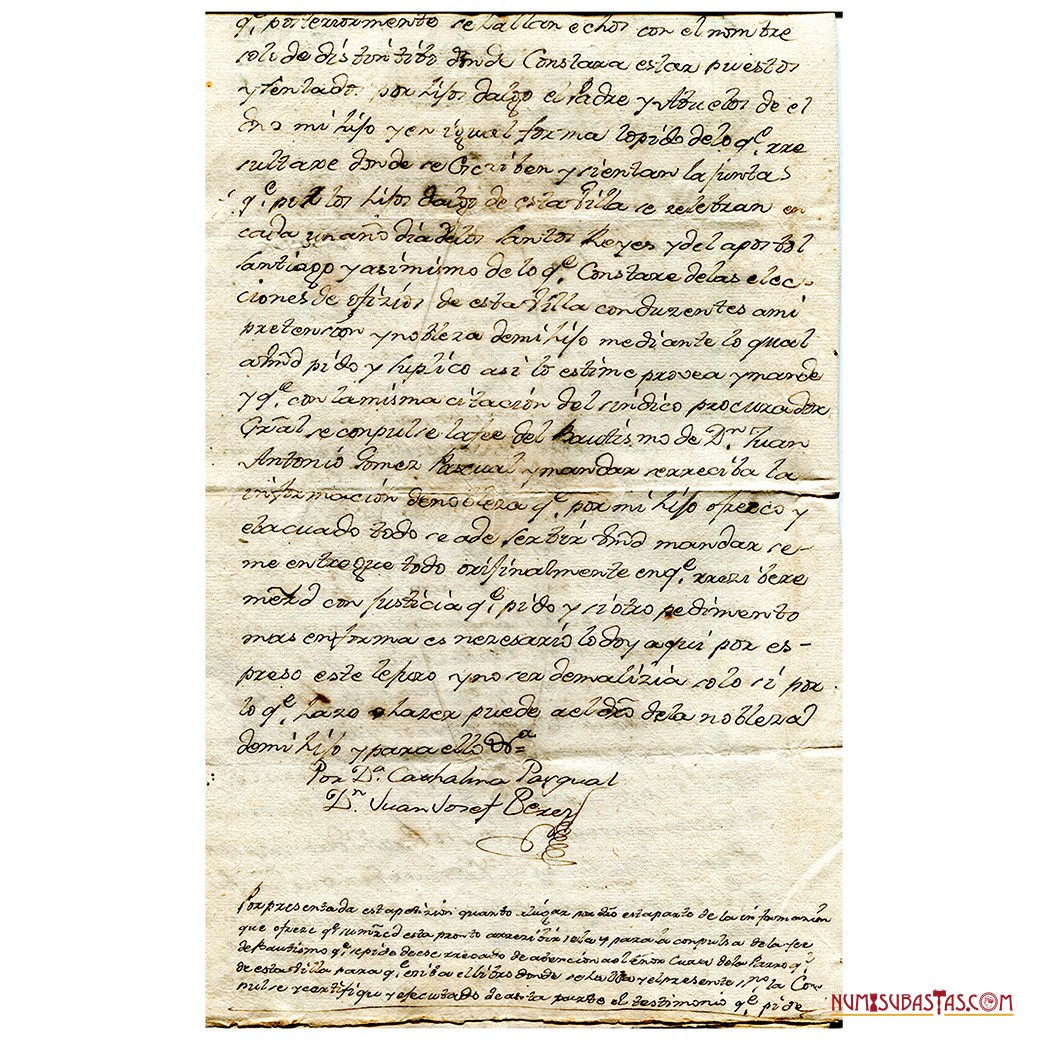 q.e posteriormente se hallan echos con el nombre
de distintito donde Constara estar puestos
y sentados por hijos dalgo el Padre y Abuelos de el
dho mi hijo y en igual forma lo pido de lo q.e rre
sultare donde se Escriben y sientan la juntas
q.e por los hijos dalgo de esta Villa se zelebran en
cada un año dia de los Santos Reyes y del apostol
Santiago y asimismo de lo q.e Constare de las elec-
ciones de ofizios de esta Villa conduzentes a mi
pretencion y nobleza de mi hijo mediante lo qual
a Vmd pido y suplico asi lo estime provea y mande
y q.e con la misma citación del síndico procurador
Gral se conpulse la fee del Bautismo de D.n Juan
Antonio Gomez Pasqual y mandar se rreciba la
informacion de nobleza q.e por mi hijo ofrezco y
ebacuado todo se a de serbir Vmd mandar se-
me entregue todo orijinalmente en q.e rrezibere
merzd con justicia q.e pido y si otro pedimento
mas en forma es nezesario lo doy aqui por es-
preso este juro y no ser de malizia solo si por
lo q.e hazo o hazer puede a el dro de la nobleza
de mi hijo y para ello
Por D.a Cathalina Pasqual
D.n Juan Josef Perez
Por presentada esta petizion quanto a lugar por dro esta parte de la informazion
que ofreze q.e su mrcd esta pronto a rrezibirsela y para la conpulsa de la fee
de Bautismo q.e se pide dese rrecado de atencion al señor Cura de la Parroq.l
de esta Villa para q.e exiba el libro donde se halla y el presente s.no la Con-
pulse y zertifique y efectuado de a esta parte el testimonio q.e pide
NUMISUBASTAS.COM